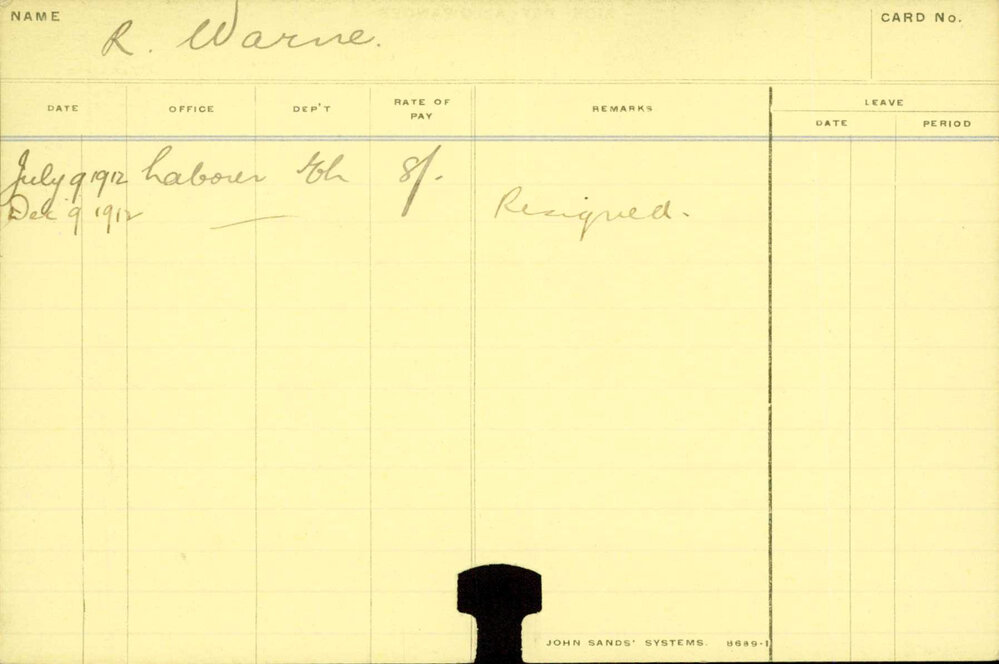 NAME R. Warne. CARD No.
DATE OFFICE DEP'T RATE OF PAY REMARKS LEAVE
DATE PERIOD
July 9 1912 Laborer 8/-
Dec 9 1912 — Resigned.
JOHN SANDS' SYSTEMS. 8689-1